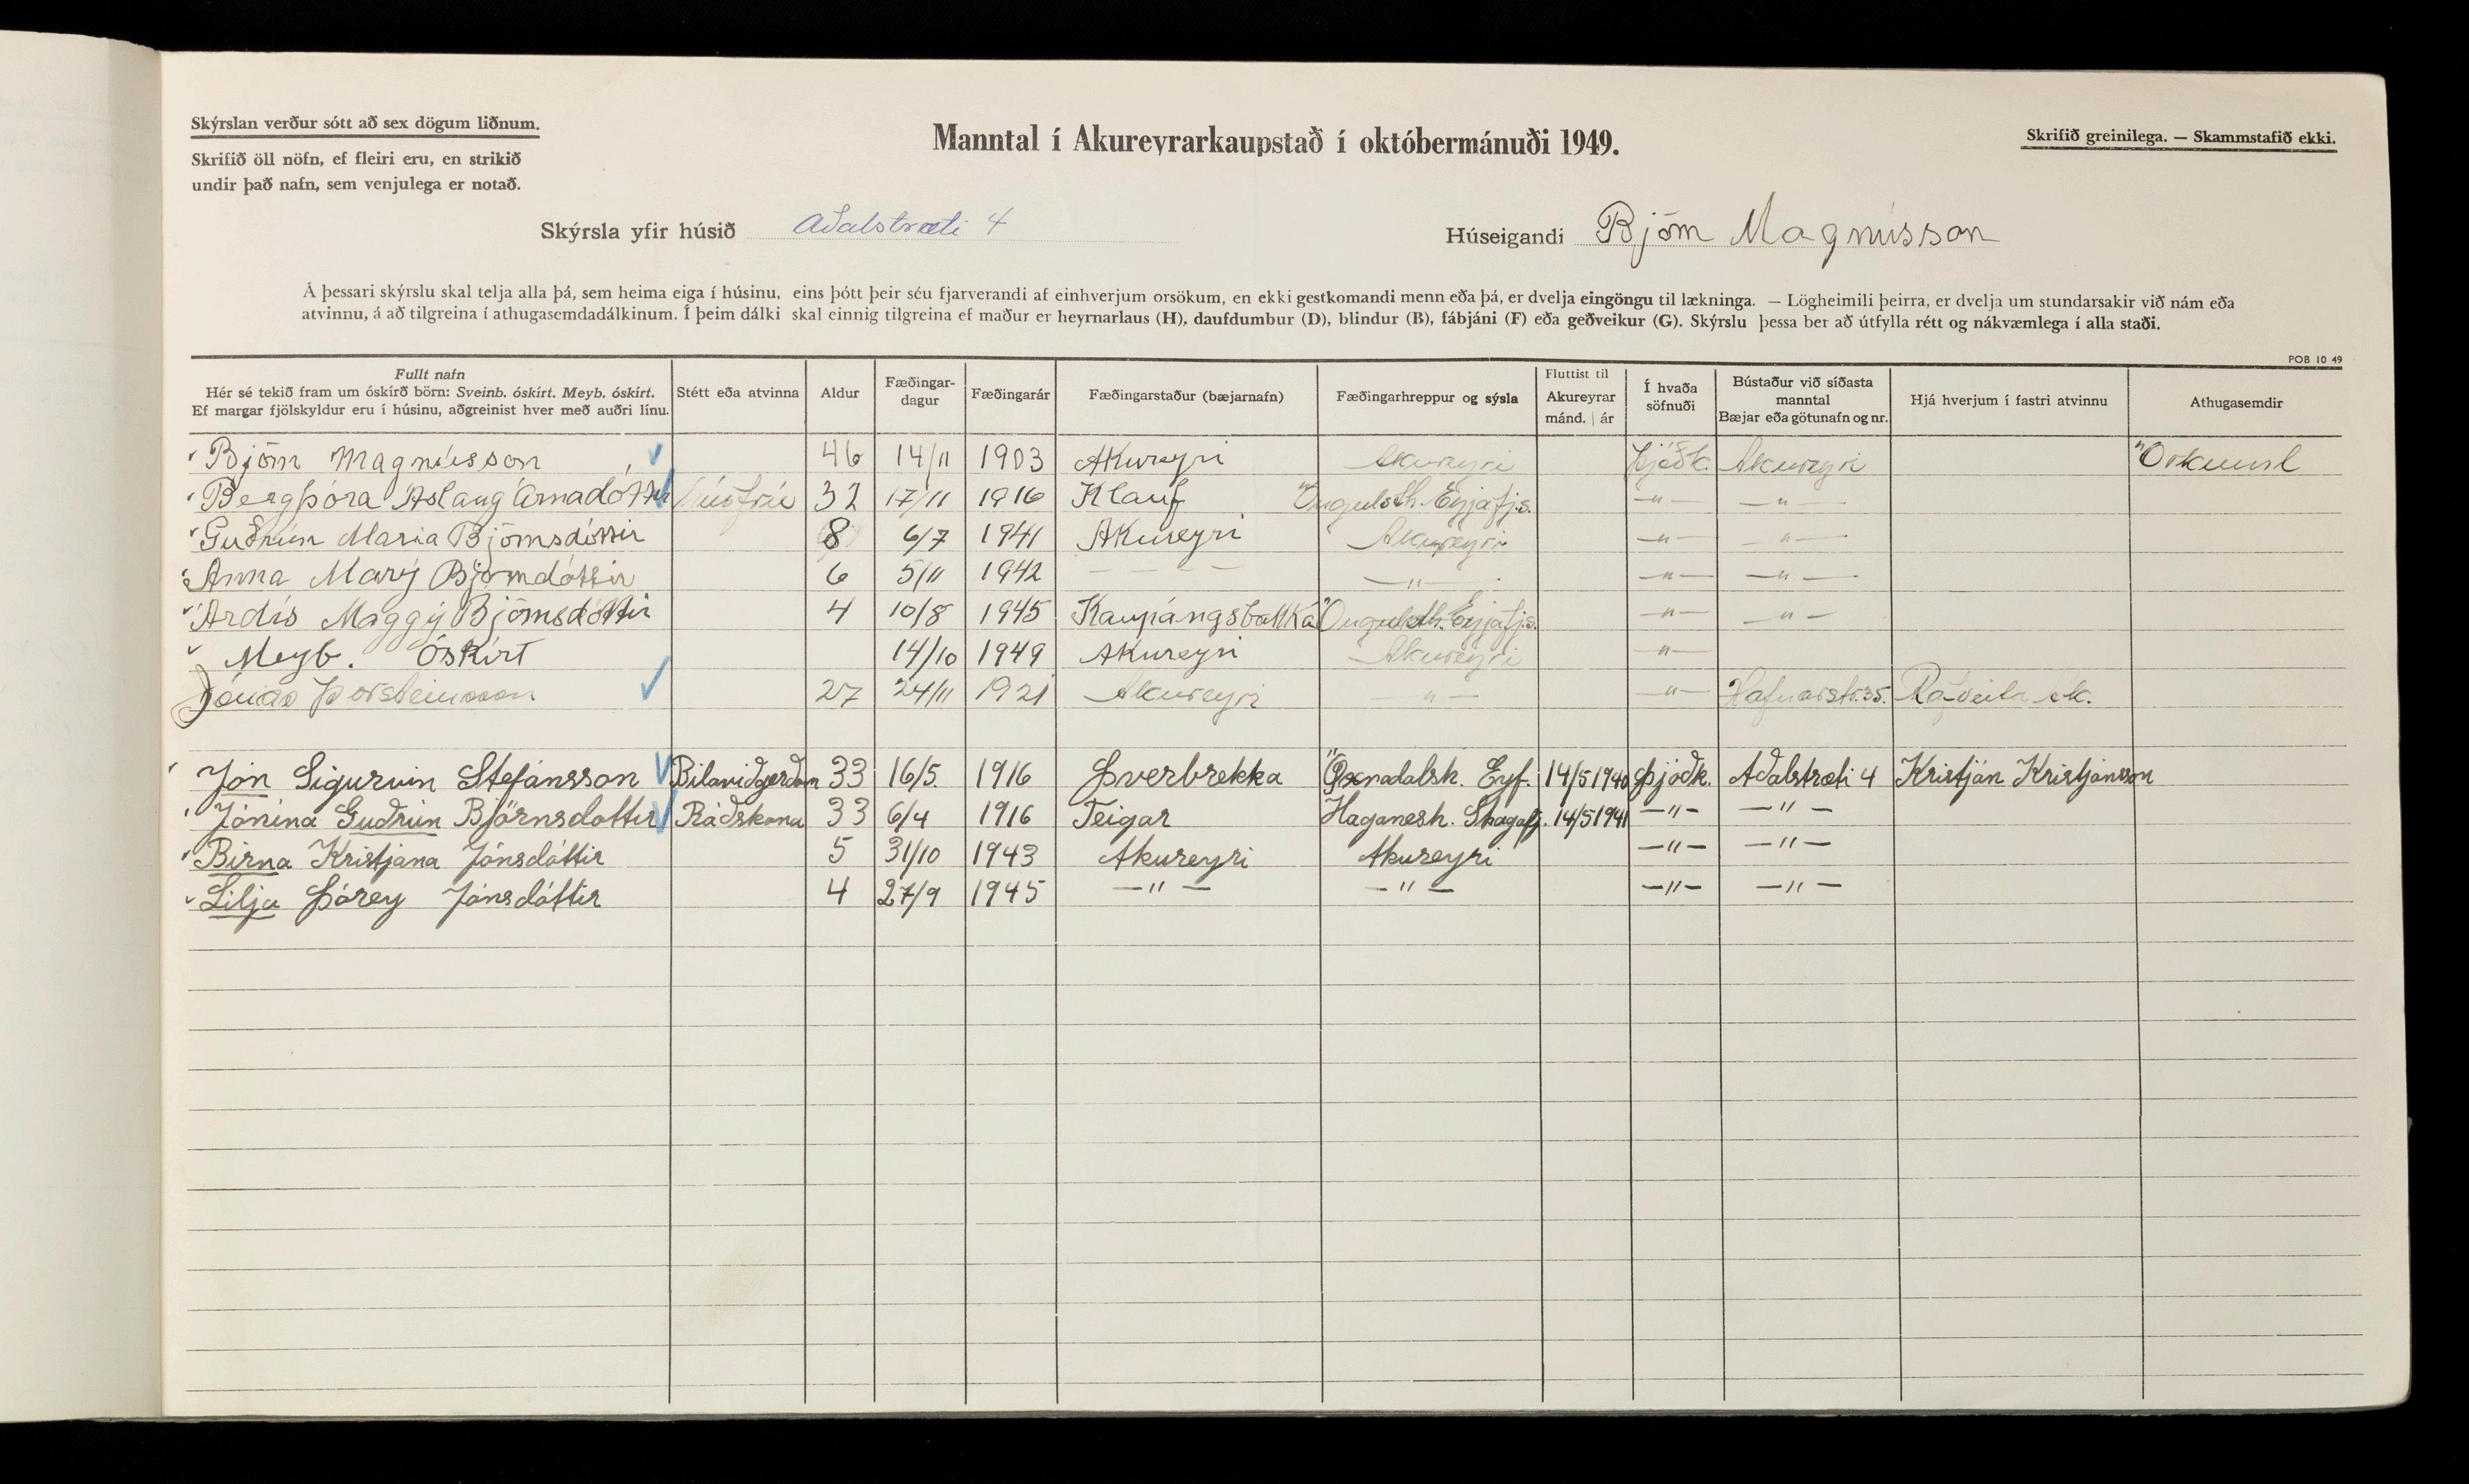 Skýrslan verður sótt að sex dögum liðnum.
Skrifið öll nöfn, ef fleiri eru, en strikið
undir það nafn, sem venjulega er notað.
Manntal í Akureyrarkaupstað í októbermánuði 1949.
Skrifið greinilega. — Skammstafið ekki.
Skýrsla yfir húsið Aðalstræti 4
Húseigandi Björn Magnússon
Á þessari skýrslu skal telja alla þá, sem heima eiga í húsinu, eins þótt þeir séu fjarverandi af einhverjum orsökum, en ekki gestkomandi menn eða þá, er dvelja eingöngu til lækninga. — Lögheimili þeirra, er dvelja um stundarsakir við nám eða
atvinnu, á að tilgreina í athugasemdadálkinum. Í þeim dálki skal einnig tilgreina ef maður er heyrnarlaus (H), daufdumbur (D), blindur (B), fábjáni (F) eða geðveikur (G). Skýrslu þessa ber að útfylla rétt og nákvæmlega í alla staði.
POB 10 49
Fullt nafn
Hér sé tekið fram um óskírð börn: Sveinb. óskírt. Meyb. óskírt.
Ef margar fjölskyldur eru í húsinu, aðgreinist hver með auðri línu.
Stétt eða atvinna
Aldur
Fæðingar-
dagur
Fæðingarár
Fæðingarstaður (bæjarnafn)
Fæðingarhreppur og sýsla
Fluttist til
Akureyrar
mánd. | ár
Í hvaða
söfnuði
Bústaður við síðasta
manntal
Bæjar eða götunafn og nr.
Hjá hverjum í fastri atvinnu
Athugasemdir
Björn Magnússon 46 14/11 1903 Akureyri Akureyri Þjóðk. Akureyri
Bergþóra Áslaug Árnadóttir Húsfrú 32 17/11 1916 Klauf Öngulsth. Eyjafj.s. —"— —"—
Guðrún Maria Björnsdóttir 8 6/7 1941 Akureyri Akureyri —"— —"—
Anna Marý Björndóttir 6 5/11 1942 — — — — —"— —"— —"—
Árdís Maggý Björnsdóttir 4 10/8 1945 Kaupángsbakká Öngulsth. Eyjafj.s. —"— —"—
Meyb. Óskírt 14/10 1949 Akureyri Akureyri —"—
Jónas Þorsteinsson 27 24/11 1921 Akureyri —"— —"— Hafnarstr. 35. Rafveita Ak.
Jón Sigurvin Stefánsson Bílaviðgerðam 33 16/5. 1916 Þverbrekka Öxnadalsh. Eyf. 14/5 1940 Þjóðk. Aðalstræti 4 Kristján Kristjánsson
Jónína Guðrún Björnsdottir Ráðskona 33 6/4 1916 Teigar Haganesh. Skagafj. 14/5 1941 —"— —"—
Birna Kristjana Jónsdóttir 5 31/10 1943 Akureyri Akureyri —"— —"—
Lilja Þórey Jónsdóttir 4 27/9 1945 —"— —"— —"— —"—